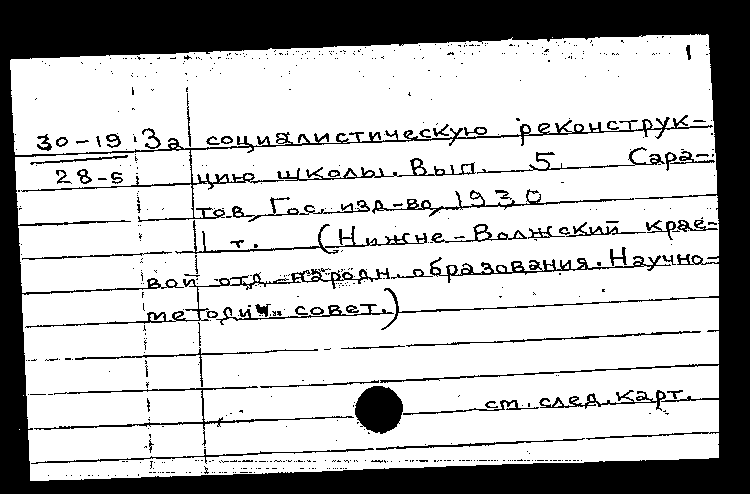 1
30-19 За социалистическую реконструк-
28-5 цию школы. Вып. 5 Сара-
тов, Гос. изд-во, 1930
1 т. (Нижне-Волжский крае-
вой отд. народн. образования. Научно-
методич. совет.)
ст. след. карт.